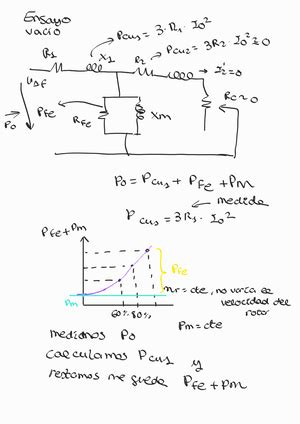 Ensayo
vacío
Pcus = 3·R1·I0²
Pcu2 = 3R2·I0² ≈ 0
R1
X1
R2
→ I2'=0
U1F
PFe
RFe
Xm
Rc≈0
P0
P0 = Pcus + PFe + Pm
← medida
Pcus = 3R1·I0²
PFe+Pm
PFe
nr = cte, no varía la
velocidad del
rotor
Pm
60% 80%
Pm = cte
medimos P0
calculamos Pcus y
restamos me queda PFe + Pm